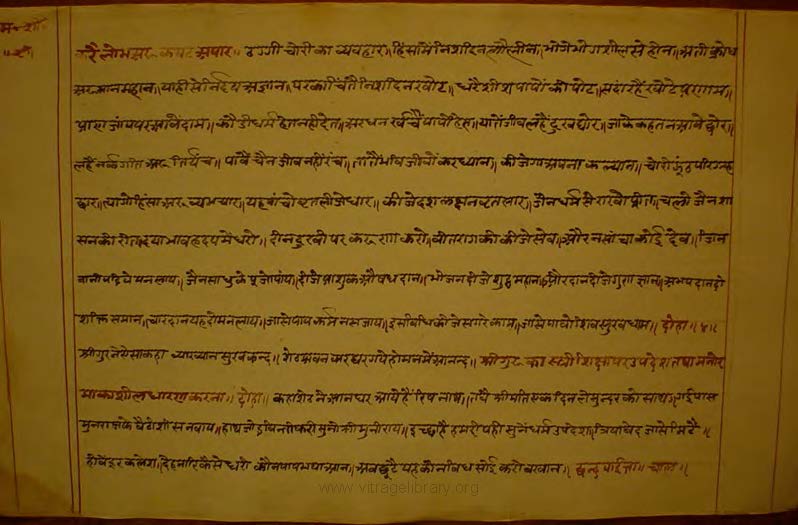 म॰ शी॰
करै लोभ अरु कपट अपार॥ ठगी चोरी का व्यवहार॥ हिंसा में निश दिन लौ लीन॥ भोगे भोग शील से हीन॥ अती क्रोध
अरु मान महान॥ याही से निर्दय अज्ञान॥ पर का चिंतै निश दिन खोट॥ धरै शीश पापों की पोट॥ सदा रहैं खोटे परणाम॥
प्राण जांय पर आवे दाम॥ कौडी धर्म हेत न हो देत॥ अर धन खर्चै पापों हित॥ यातें जीव लहैं दुख घोर॥ जाके कहत न आवे छोर॥
लहैं नर्क गति अरु तिर्यंच॥ पावैं चैन जीव नहीं रंच॥ तातैं भवि जीवों कर ध्यान॥ कीजे अपना कल्यान॥ चोरी झूंठ परिग्रह
छार॥ त्यागो हिंसा अरु व्यभचार॥ यह पांचो व्रत लीजे धार॥ कीजे दश लक्षन व्रत सार॥ जैन धर्म से राखो प्रीत॥ चलो जैन शा
सन की रीत॥ दया भाव हृदय में धरो॥ दीन दुखी पर करुणा करो॥ वीतराग की कीजे सेव॥ और न सांचा कोई देव॥ जिन
वानी पढिये मन लाय॥ जैन साधु के पूजो पांय॥ दीजे प्राशुक औषध दान॥ भोजन दीजे शुद्ध महान॥ और दान दीजे गुण ज्ञान॥ अभय दान दो
शक्ति समान॥ चार दान यह दो मन लाय॥ जासे पाप कर्म नस जाय॥ इस विध कीजे सगरे काम॥ जासे पावो शिव सुख धाम॥ दोहा॥ ४॥
श्री गुर ने ऐसा कहा व्याख्यान सुख कन्द॥ शेठ श्रवन कर घर गये हो मन में आनन्द॥ श्री गुर का स्त्री शिक्षा पर उपदेश तथा मनोर
मा का शील धारण करना॥ दोहा॥ कहा शेठ ने आन घर आये हैं रिष नाथ॥ तबै श्रीमति एक दिन ले सुन्दर को साथ॥ गई पास
मुनराज के बैठी शीस नवाय॥ हाथ जोड विनती करी सुनो श्री मुनीराय॥ इच्छा है हमरी यही सुनें धर्म उपदेश॥ त्रिया वेद जासे मिटै॥
होवें दूर कलेश॥ देह नारि कैसे धरी कौन पाप भया आन॥ अब छूटै यह कौन विध सोई करो बखान॥ छन्द पाईता॥ चाल॥
www.vitragelibrary.org